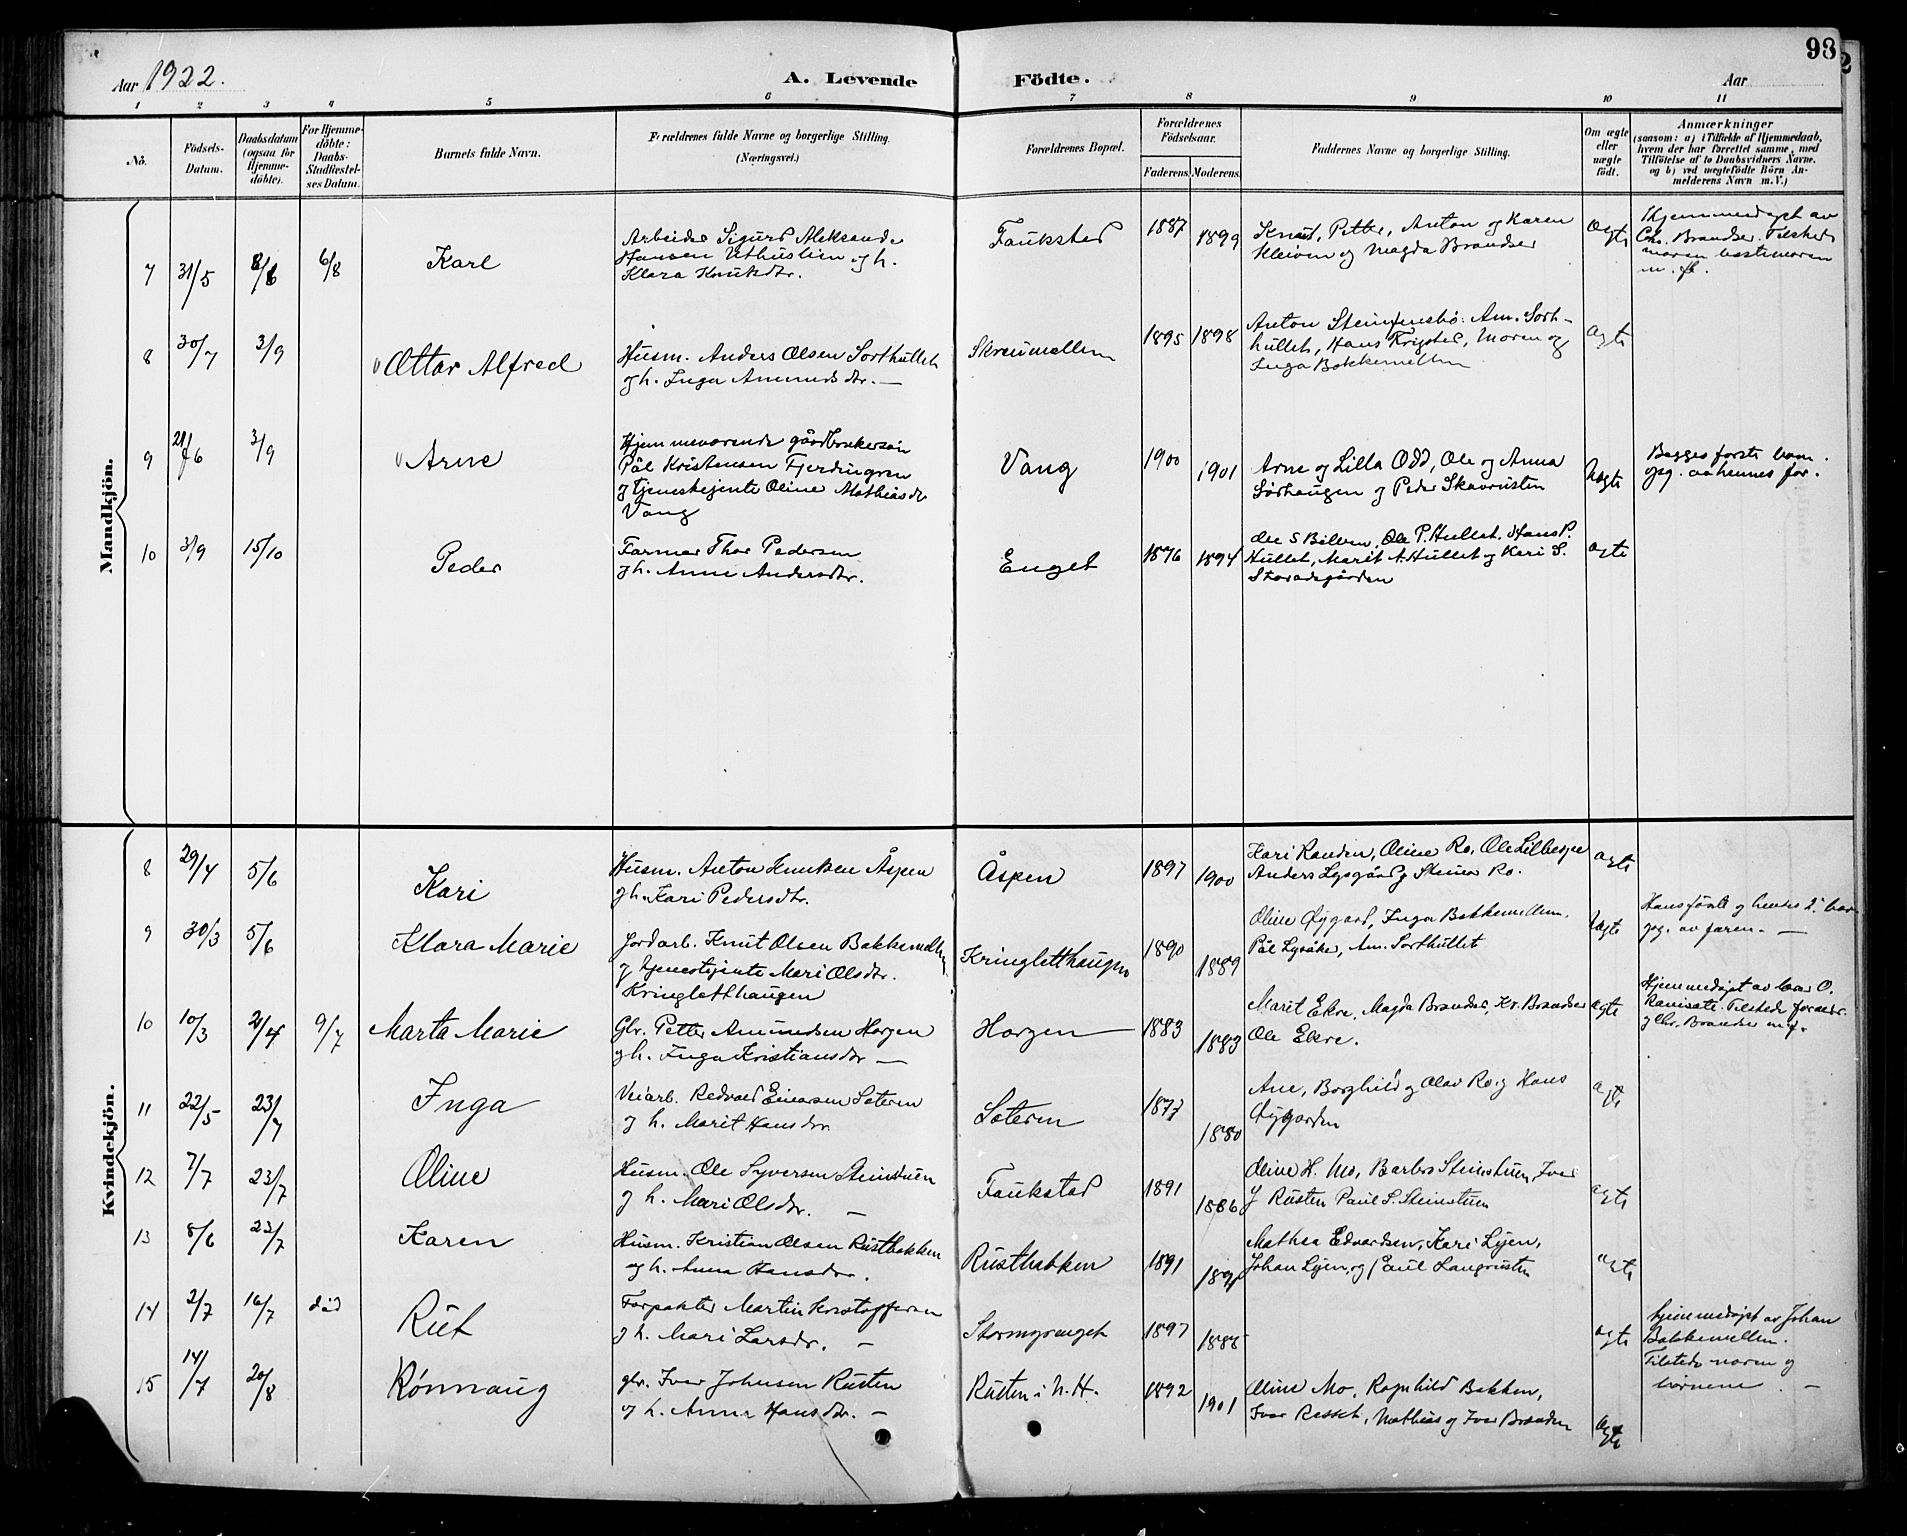 Aar 1922.
A. Levende
Födte.
Aar
98
1 2 3 4 5 6 7 8 9 10 11
No.
Födsels-
Datum.
Daabsdatum
(ogsaa för
Hjemme-
döbte).
For Hjemme-
döbte:
Daabs-
Stadfæstel-
ses Datum.
Barnets fulde Navn.
Forældrenes fulde Navne og borgerlige Stilling.
(Næringsvei.)
Forældrenes Bopæl.
Forældrenes
Födselsaar.
Faderens. Moderens.
Faddernes Navne og borgerlige Stilling.
Om ægte
eller
uægte
födt.
Anmærkninger
(saasom: a) i Tilfælde af Hjemmedaab,
hvem der har forrettet samme, med
Tilföielse af to Daabsvidners Navne.
og b) ved uægtefödte Börn An-
melderens Navn m. V.)
Mandkjön.
7 31/5 8/6 6/8 Karl
Arbeider Sigurd Aleksander
Hansen Uthuslien og h.
Klara Knutsdtr.
Faukstad 1887 1899
Knut, Petter, Anton og Karen
Kleiven og Magda Brandser
ægte
Hjemmedøpt av
Chr. Brandser. Tilstede
moren bestemoren
m. fl.
8 30/7 3/9 Ottar Alfred
Husm. Anders Olsen Sorthullet
og h. Inga Amundsdtr. —
Skreumellem 1895 1898
Anton Am. Sort-
hullet, Hans Moren og
Inga Bakkemellem
ægte
9 21/6 3/9 Arne
Hjemmeværende gårdbrukersøn
Pål Kristensen Fjerdingren
og tjenestejente Oline Mathiasdr.
Vang
Vang 1900 1901
Arne og Lilla Odd, Ole og Anna
Sørhaugen og Peder Skavrusten
Uægte
Begges første barn.
opg. av hennes far.
10 3/9 15/10 Peder
Farmer Thor Pedersen
og h. Anne Andersdtr.
Enget 1876 1894
Ole S Bilben, Ole P. Hullet, Hans P.
Hullet, Marit A. Hullet og Kari S.
Storadegården
ægte
Kvindekjön.
8 29/4 5/6 Kari
Husm. Anton Knutsen Åspen
og h. Kari Pedersdtr.
Åspen 1897 1900
Kari Randen, Oline Ro, Ole Lilbesse
Anders Lysgård og Steinar Ro.
ægte
9 30/3 5/6 Klara Marie
Jordarb. Knut Olsen Bakkemellem
og tjenestejente Mari Olsdtr.
Kringletthaugen
Kringletthaugen 1890 1889
Oline Øygard, Inga Bakkemellem.
Pål Lysåker, Am. Sorthullet
Uægte
Hans første og hendes 2. barn
opg. av faren. —
10 10/3 2/4 9/7 Marta Marie
Gbr. Petter Amundsen Horgen
og h. Inga Kristiansdtr —
Horgen 1883 1883
Marit Ekre, Magda Brandser, Kr. Brandser
Ole Ekre.
ægte
Hjemmedøpt av O.
Tilstede foreldr.
og Chr. Brandser m. f.
11 22/5 23/7 Inga
Veiarb. Redvald Einarsen Sæteren
og h. Marit Hansdr.
Sæteren 1877 1880
Ane, Borghild og Olav Ro og Hans
Øygarden
ægte
12 7/7 23/7 Oline
Husm. Ole Syversen Steinstuen
og h. Mari Olsdr. —
Faukstad 1891 1886
Oline H. Mo, Barbro Steinstuen, Iver
J Rusten Paul S. Steinstuen
ægte
13 8/6 23/7 Karen
Husm. Kristian Olsen Rustbakken
og h. Anna Hansdr.
Rustbakken 1891 1891
Mathea Edvardsen, Kari Lyen,
Johan Lyen og Paul Langrusten
ægte
14 2/7 16/7 død Rut
Forpakter Martin Kristoffersen
og h. Mari Larsdr. —
Stormyrenget 1897 1888
ægte
hjemmedøpt av Johan
Bakkemellem.
Tilstede moren og
børnene. —
15 14/7 20/8 Rønnaug
gbr. Iver Johnsen Rusten
og h. Anne Hansdr. —
Rusten i N. H. 1892 1901
Oline Mo, Ragnhild Bakken,
Ivar Resset, Mathias og Ivar Brenden
ægte